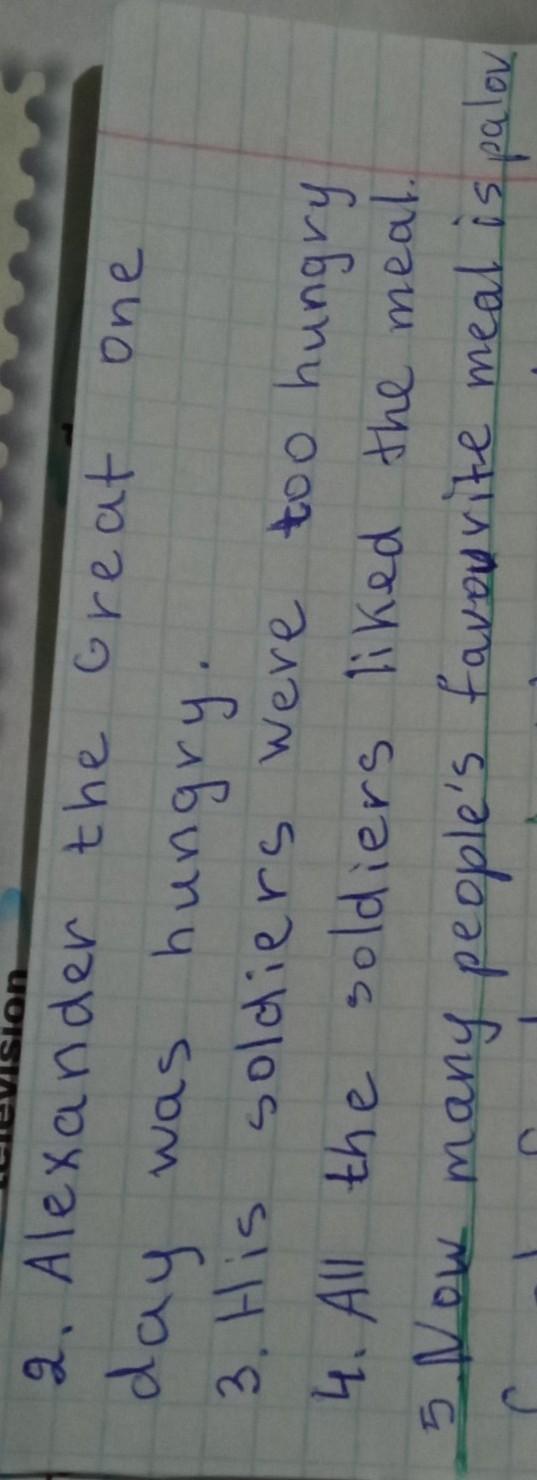 2. Alexander the Great one
day was hungry.
3. His soldiers were too hungry
4. All the soldiers liked the meal.
5 Now many people's favourite meal is palov